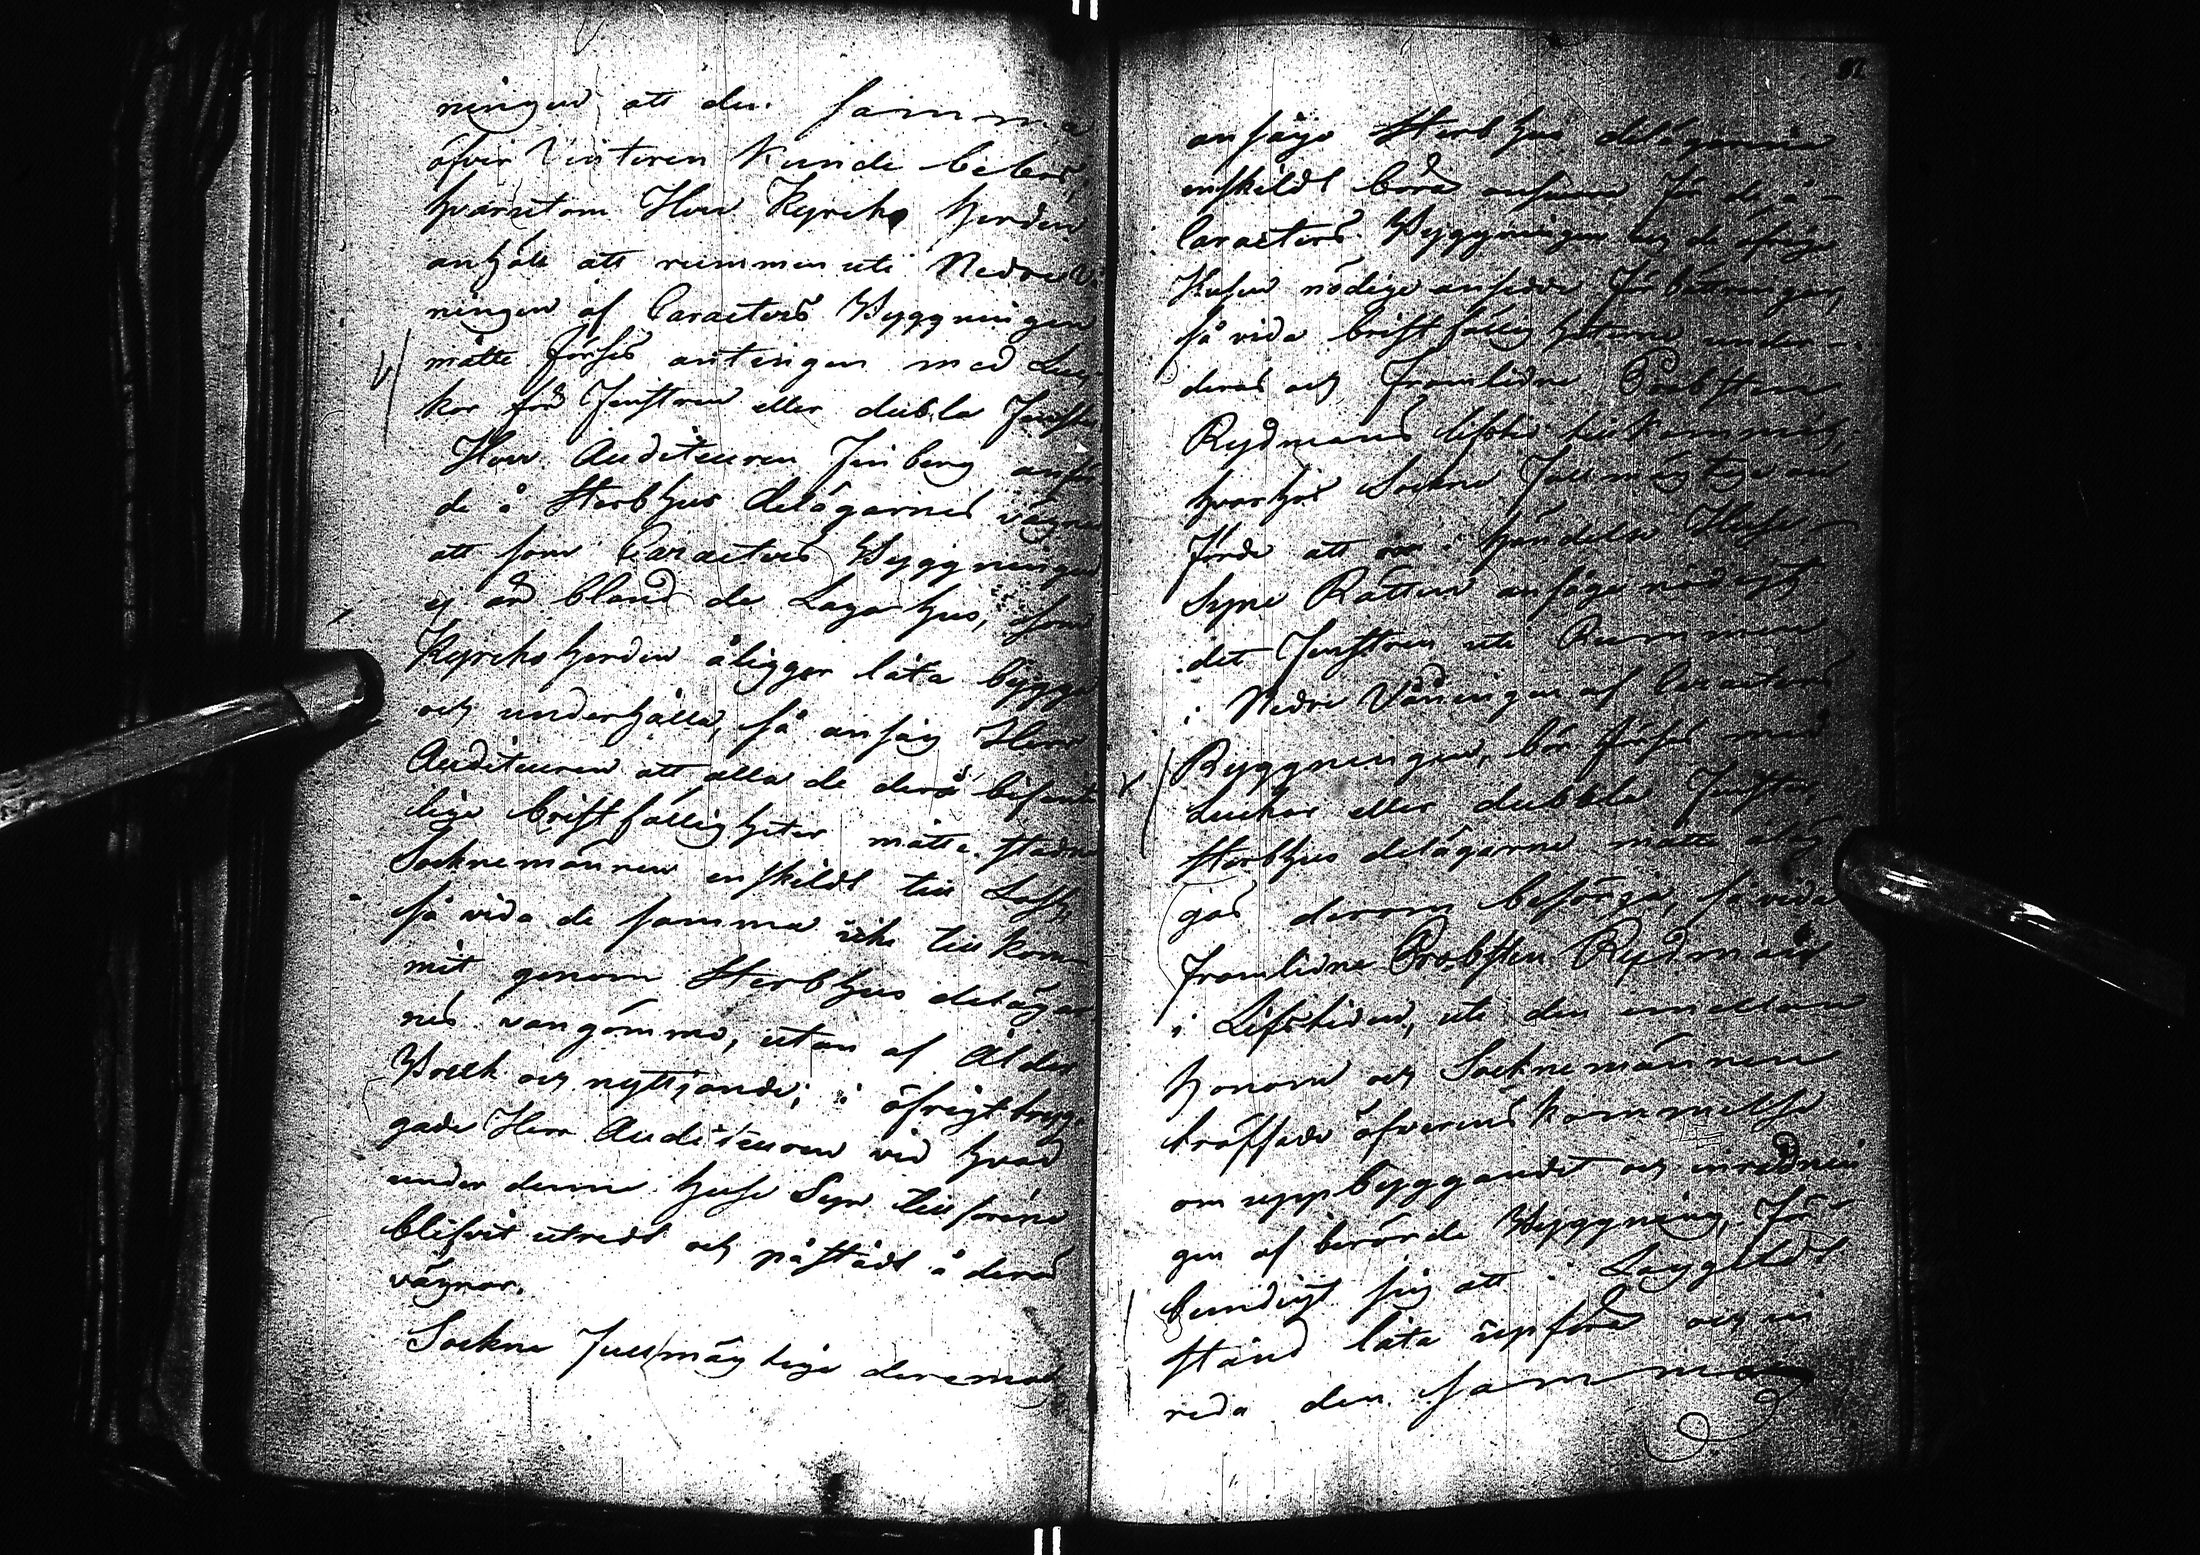 ningen att den samma
öfver Vinteren kunde bebos,
hvarutom Herr Kyrcko herden
anhölt att rummen uti Nedre Vå
ningen af Caracters Byggningen
måtte förses antingen med Luc
kor för Fenstren eller dubla Fenster
Herr Auditeuren Finberg anför
de å Sterbhus delägarnes vägnar
att som Caracters Byggningen
ej är bland de Laga hus, som
Kyrckoherden åligger låta bygga
och underhålla, så ansåg Herr
Auditeuren att alla de derå befint
lige bristfälligheter måtte stadna
Socknemännen enskildt till Last,
så vida de samma icke till kom
mit genom Sterbhus delägar
nes vangömmo, utan af Ålder
Bruk och nyttjande; i öfrigt tryg
gade Herr Auditeuren vid hvad
under denne huse Syn till förene
blifvit utredt och påstådt å deras
vägnar.
Sockne Fullmäg tige deremot
81
ansågo Sterbhus delägarnne
enskildt böra ansvara för de, å
Caracters Byggningen och de öfrige
Husen nödige ansedde förbättringar,
så vida bristfälligheterne under
deras och framlidne Probsten
Rydmans lifstid till kommit,
hvarhos Sockne Fullmägtige an
förde att om i händelse Huse
Syne Rätten ansåge nödigt
det Fenstren uti Rummen
i Nedre Våningen af Caracters
Byggningen, bör förses med
Luckor eller dubbla Fenster,
Sterbhus delägarne måtte åläg
gas derom besörja, så vida
framlidne Probsten Rydman
i Lifstiden, uti den emellan
honom och Socknemännen
träffade öfverens kommelse
om uppbyggandet och inrednin
gen af berörde Byggning, för
bundigt sig att i Laggildt
stånd låta uppföra och in
reda den samma